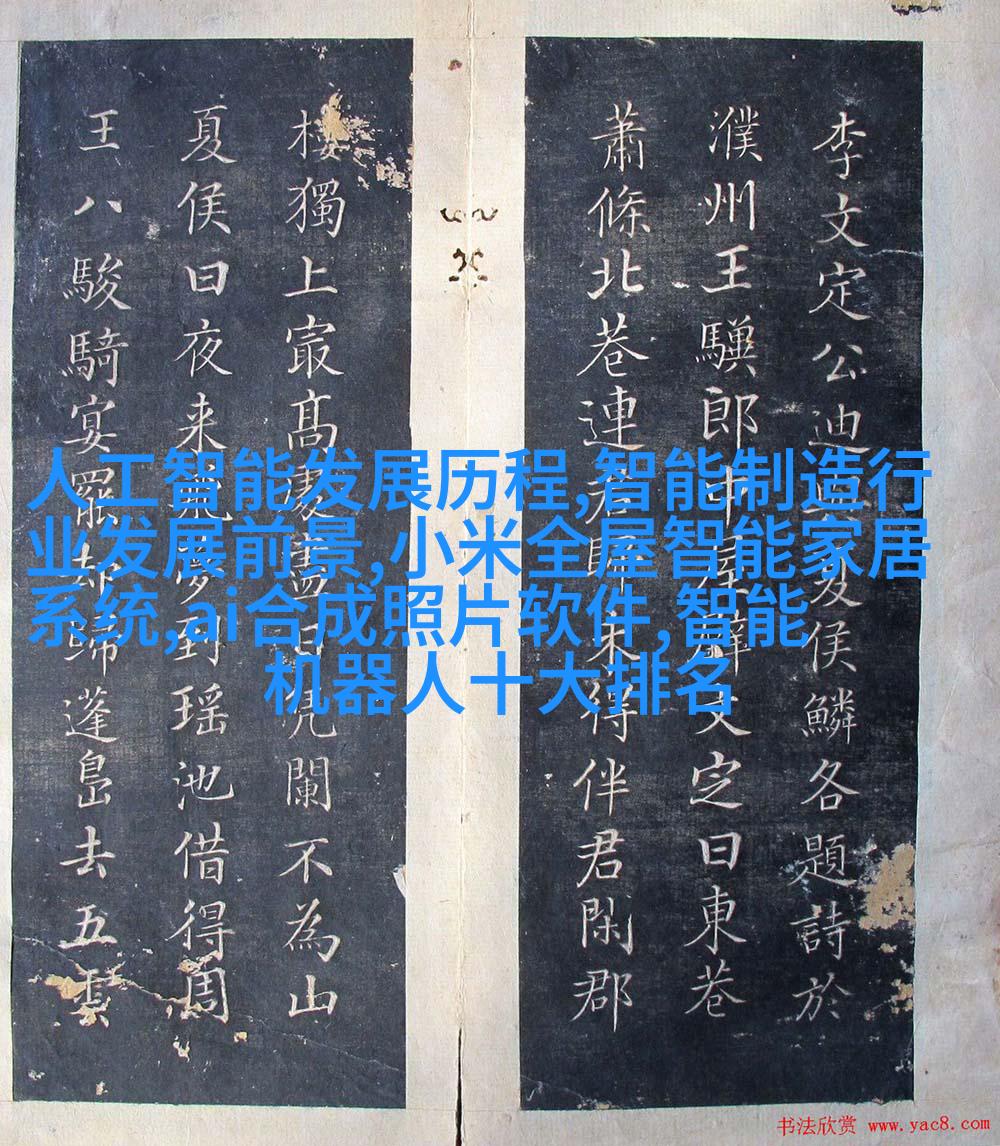 李文定公迪夏侯鱗各題詩於
濮州王驥郎中居文定曰東巷
蕭條北巷連来得伴君閑郡
樓獨上寂高凭闌不為山
夏侯曰夜来夢到瑶池借得周
王八駿騎宴罷却歸蓬島去五雲
人工智能发展历程,智能制造行
业发展前景,小米全屋智能家居
系统,ai合成照片软件,智能
机器人十大排名
书法欣赏 www.yac8.com